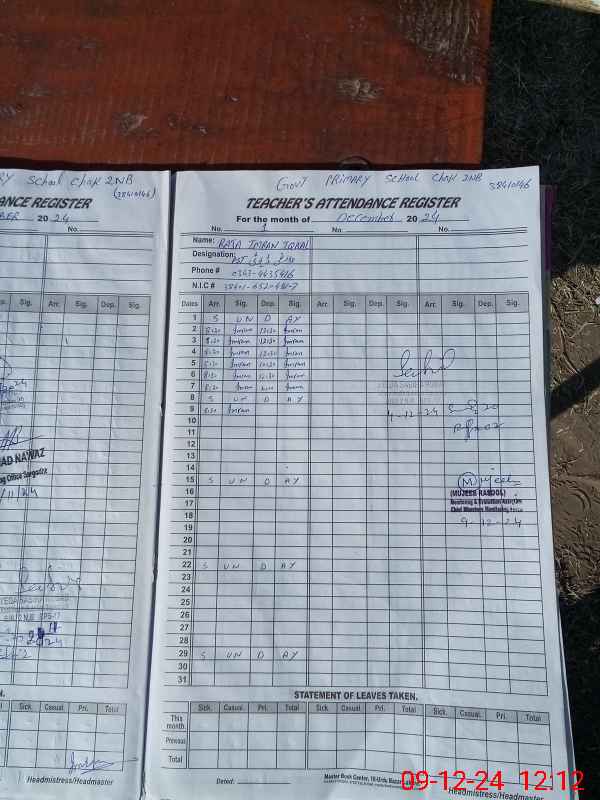 RY School Chak 2NB
(38410146)
NCE REGISTER
BER 2024
No.
p. Sig. Arr. Sig. Dep. Sig.
AD NAWAZ
ng Office Sargodha
/11/24
N.
Sick. Casual. Pri. Total
Headmistress/Headmaster
GOVT PRIMARY SCHOOL CHAK 2NB 38410146
TEACHER'S ATTENDANCE REGISTER
For the month of December 2024
No. 1 No. No.
Name: RAJA IMRAN IQBAL
Designation: PST
Phone # 0343-4635416
N.I.C #
Dates Arr. Sig. Dep. Sig. Arr. Sig. Dep. Sig. Arr. Sig. Dep. Sig.
1 S UN D AY
2 8:30 Imran 12:30 Imran
3 8:30 Imran 12:30 Imran
4 8:30 Imran 12:30 Imran
5 8:30 Imran 12:30 Imran
6 8:30 Imran 12:30 Imran
7 8:30 Imran Imran
8 S UN D AY
9 8:30 Imran
4-12-24
10
11
12
13
14
15 S UN D AY
M Mujeeb
(MUJEEB RASOOL)
16
Monitoring & Evaluation Assistant
17
Chief Ministers Monitoring Force
18
9-12-24
19
20
21
22 S UN D AY
23
24
25
26
27
28
29 S UN D AY
30
31
STATEMENT OF LEAVES TAKEN.
Sick. Casual. Pri. Total Sick. Casual. Pri. Total Sick. Casual. Pri. Total
This month
Previous
Total
Dated:
Master Book Center, 10-Urdu Bazar
Headmistress/Headmaster
09-12-24 12:12